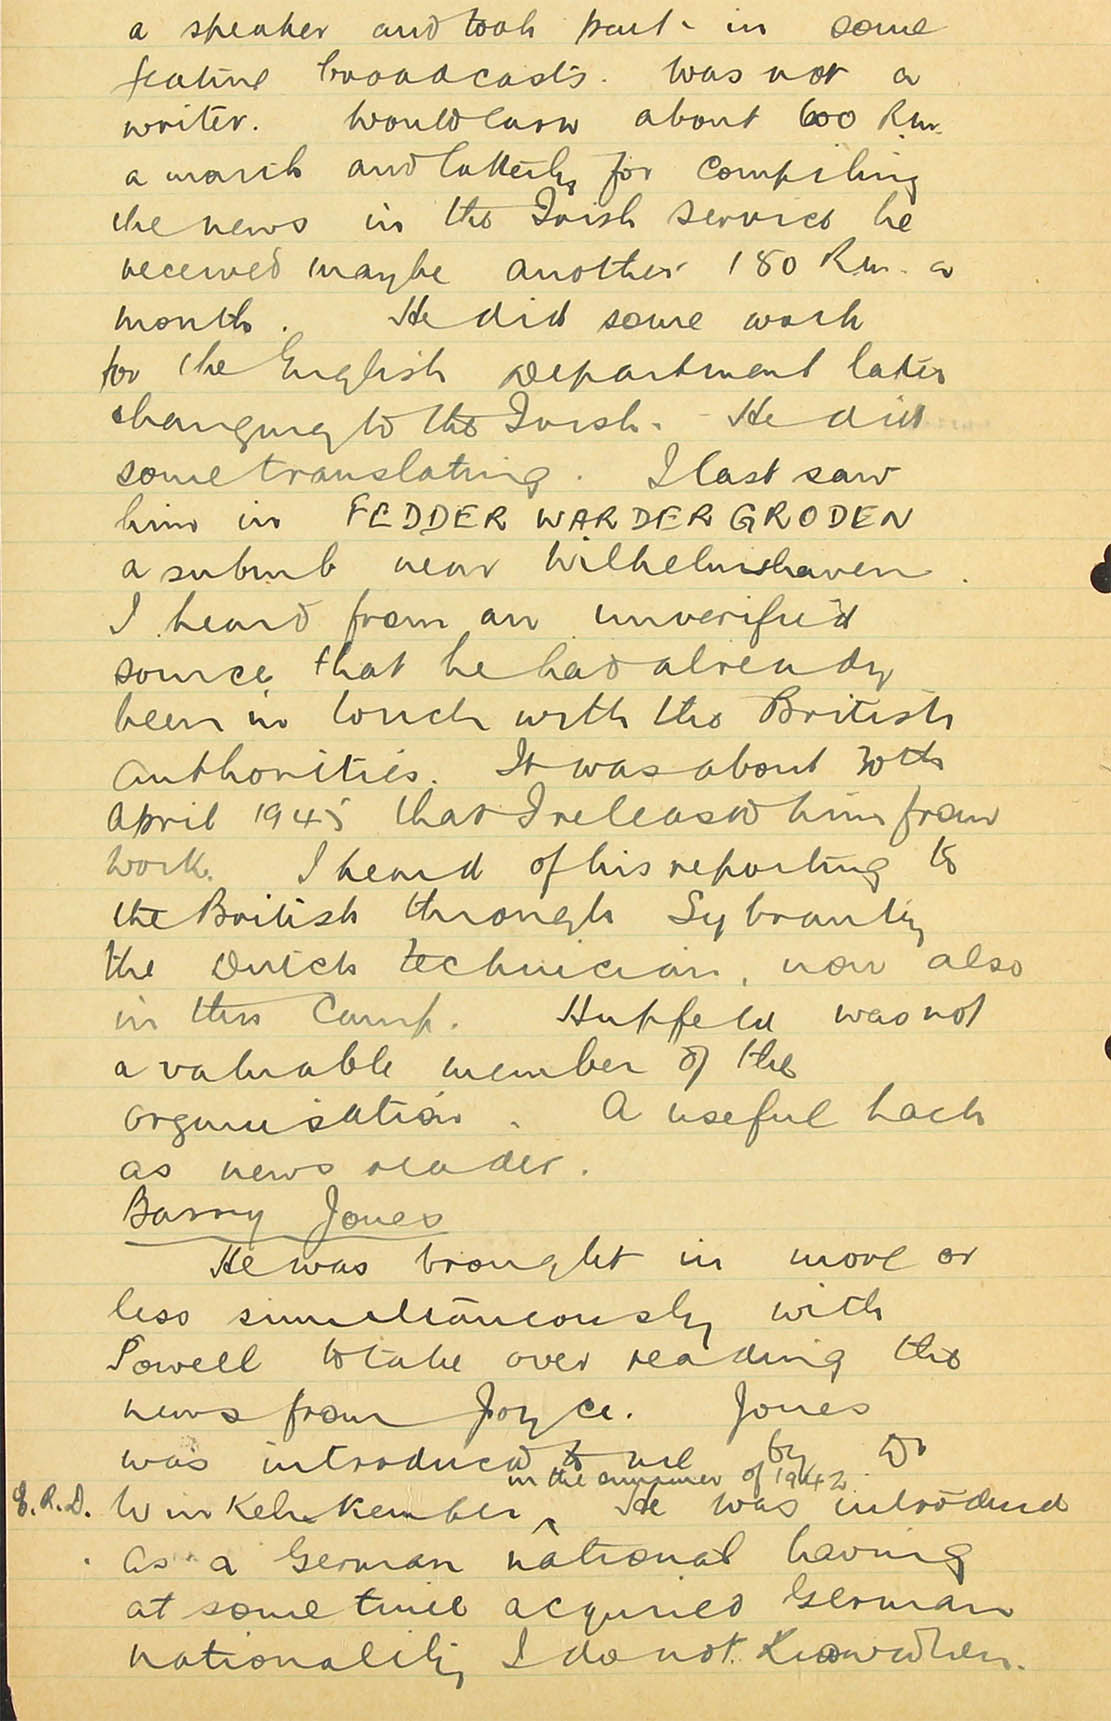 a speaker and took part in some
feature broadcasts. Was not a
writer. Would earn about 600 Rm.
a month and latterly for compiling
the news in the Irish Service he
received maybe another 180 Rm. a
month. He did some work
for the English Department later
changing to the Irish. He did
some translating. I last saw
him in FEDDER WARDER GRODEN
a suburb near Wilhelmshaven.
I heard from an unverified
source that he had already
been in touch with the British
authorities. It was about 30th
April 1945 that I released him from
work. I heard of his reporting to
the British through Sybranty
the Dutch technician, now also
in this Camp. Hupfeld was not
a valuable member of the
organisation. A useful hack
as news reader.
Barry Jones
He was brought in more or
less simultaneously with
Powell to take over reading the
news from Joyce. Jones
was introduced to me by Dr
in the summer of 1942.
E.R.D. Winkelnkemper ^ He was introduced
as a German national having
at some time acquired German
nationality, I do not know when.